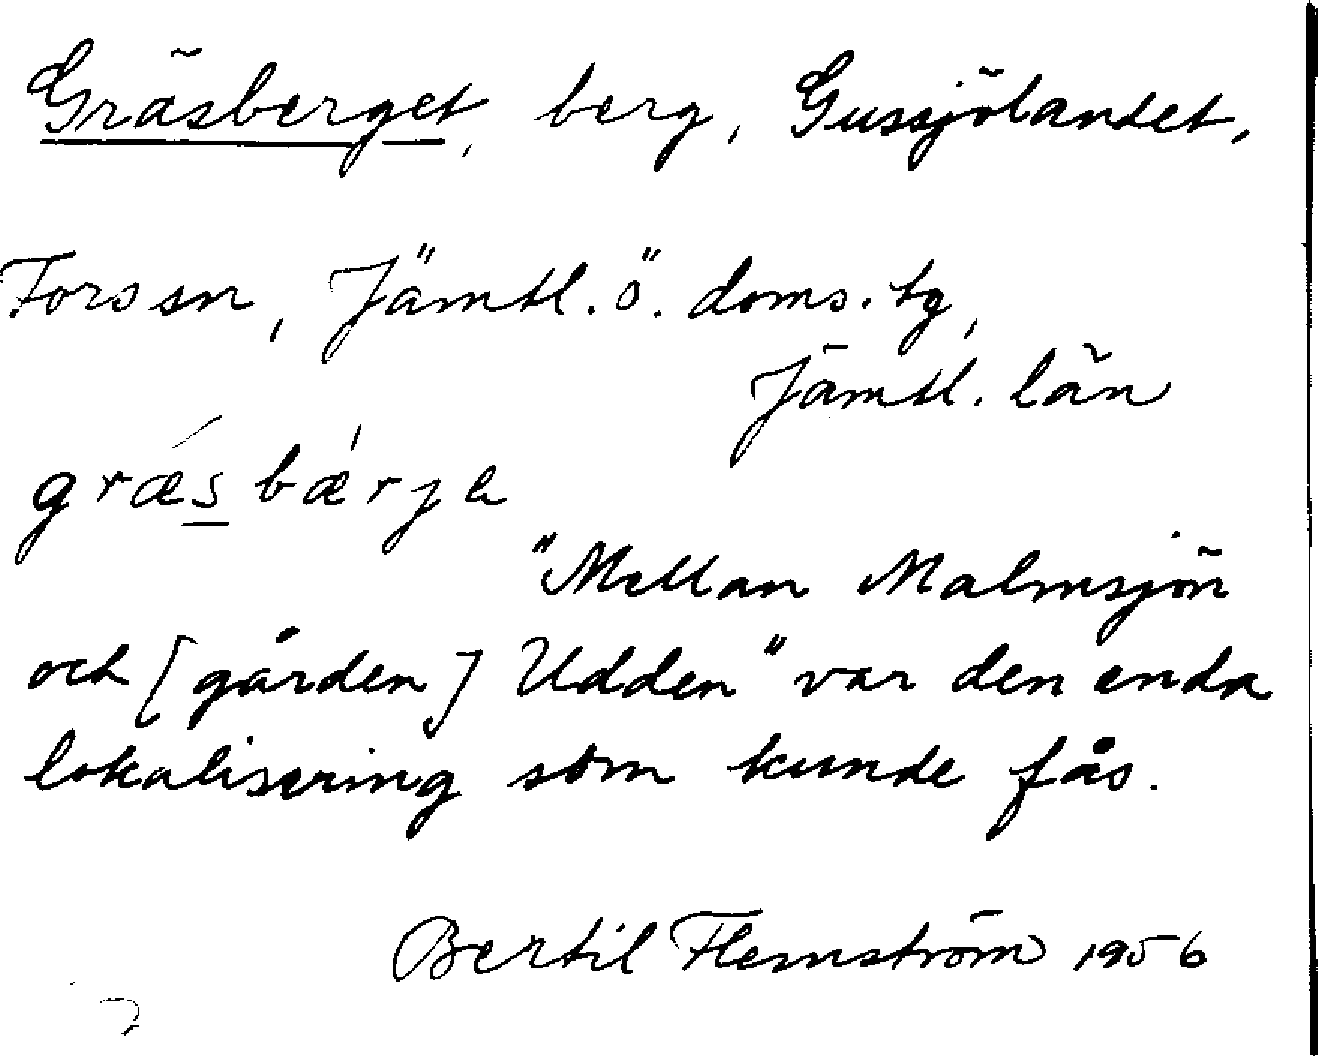 Gräsberget, berg, Gussjölandet,
Fors sn, Jämtl. ö. doms. tg,
Jämtl. län
græ´s bæ´rje
"Mellan Malmsjön
och [gården] Udden" var den enda
lokalisering som kunde fås.
Bertil Flemström 1956